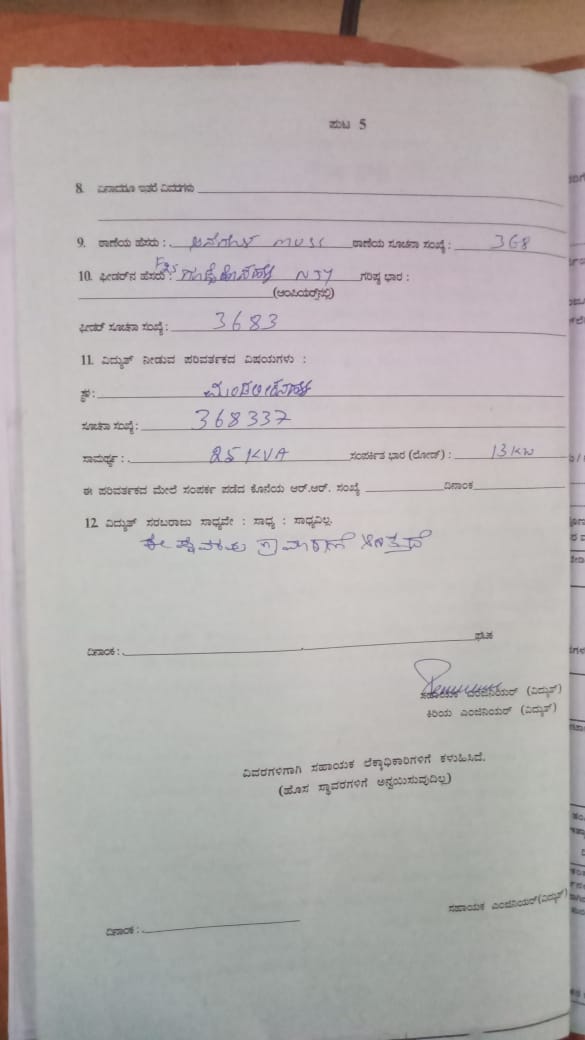 ಪುಟ 5
8. ಏನಾದರೂ ಇತರೆ ವಿವರಗಳು
9. ಠಾಣೆಯ ಹೆಸರು : MUSS ಠಾಣೆಯ ಸೂಚನಾ ಸಂಖ್ಯೆ : 368
10. ಫೀಡರ್‌ನ ಹೆಸರು : F25 NJY ಗರಿಷ್ಠ ಭಾರ :
(ಆಂಪಿಯರ್‌ನಲ್ಲಿ)
ಫೀಡರ್ ಸೂಚನಾ ಸಂಖ್ಯೆ : 3683
11. ವಿದ್ಯುತ್ ನೀಡುವ ಪರಿವರ್ತಕದ ವಿಷಯಗಳು :
ಸ್ಥಳ:
ಸೂಚನಾ ಸಂಖ್ಯೆ: 368337
ಸಾಮರ್ಥ್ಯ : 25 KVA ಸಂಪರ್ಕಿತ ಭಾರ (ಲೋಡ್) : 13 KW
ಈ ಪರಿವರ್ತಕದ ಮೇಲೆ ಸಂಪರ್ಕ ಪಡೆದ ಕೊನೆಯ ಆರ್.ಆರ್. ಸಂಖ್ಯೆ ದಿನಾಂಕ
12. ವಿದ್ಯುತ್ ಸರಬರಾಜು ಸಾಧ್ಯವೇ : ಸಾಧ್ಯ : ಸಾಧ್ಯವಿಲ್ಲ.
ದಿನಾಂಕ : ಘಟಕ
ಸಹಾಯಕ ಎಂಜಿನಿಯರ್ (ವಿದ್ಯುತ್)
ಕಿರಿಯ ಎಂಜಿನಿಯರ್ (ವಿದ್ಯುತ್)
ವಿವರಗಳಿಗಾಗಿ ಸಹಾಯಕ ಲೆಕ್ಕಾಧಿಕಾರಿಗಳಿಗೆ ಕಳುಹಿಸಿದೆ.
(ಹೊಸ ಸ್ಥಾವರಗಳಿಗೆ ಅನ್ವಯಿಸುವುದಿಲ್ಲ)
ಸಹಾಯಕ ಎಂಜಿನಿಯರ್ (ವಿದ್ಯುತ್)
ದಿನಾಂಕ :